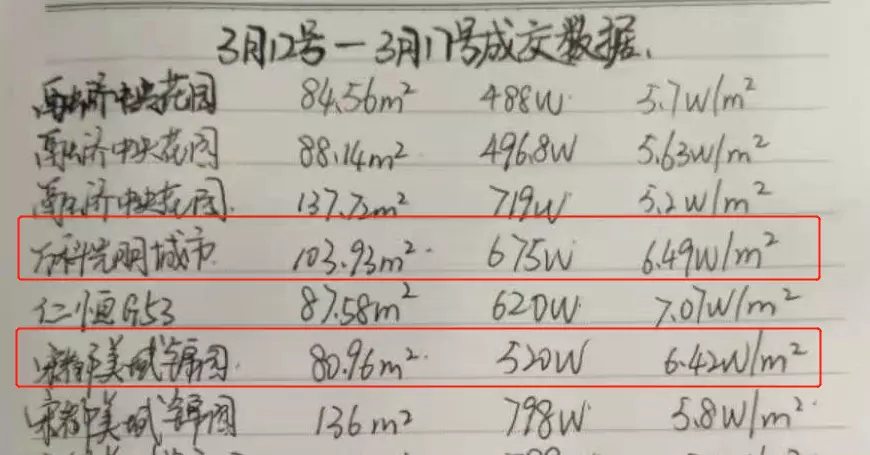 3月12号—3月17号成交数据.
中央花园 84.56m² 488W 5.7W/m²
济中央花园 88.14m² 496.8W 5.63W/m²
济中央花园. 137.72m² 719W 5.2W/m²
万科光明城市. 103.93m² 675W 6.49W/m²
仁恒G53 87.58m² 620W 7.07W/m²
宋都美域锦园. 80.96m² 520W 6.42W/m²
宋都美域锦园 136m² 798W 5.8W/m²